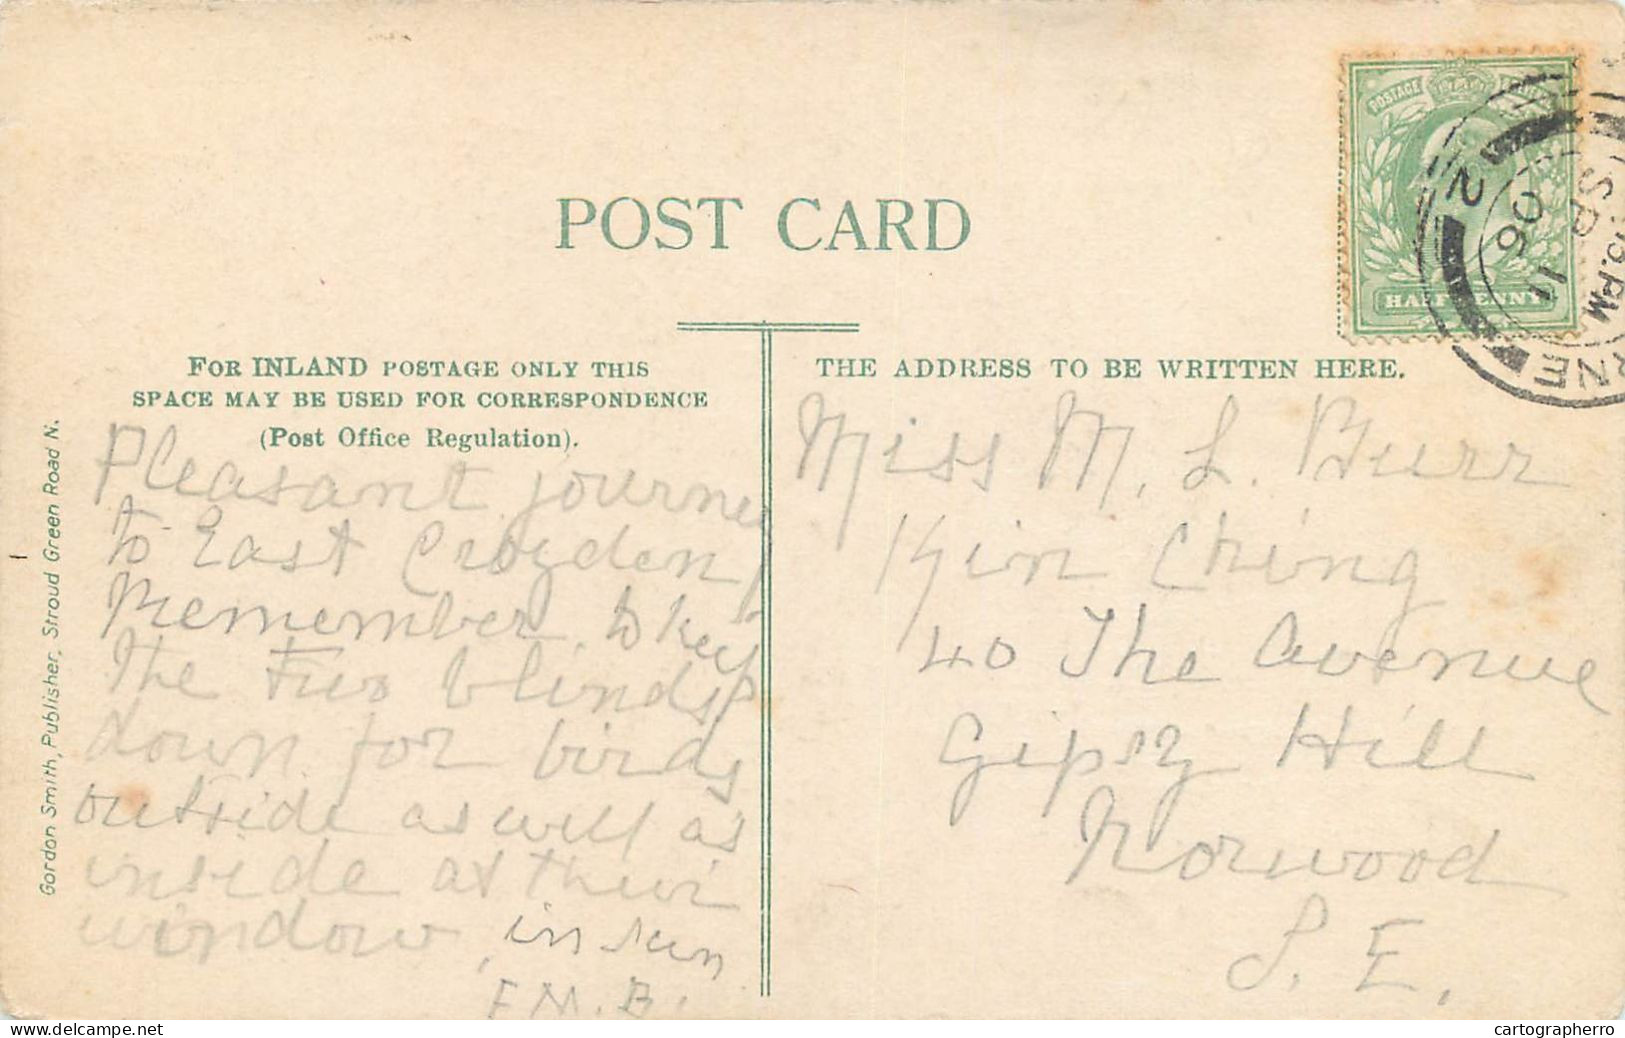 POST CARD
POSTAGE
HALFPENNY
2
SP 11
06
PM
RNE
FOR INLAND POSTAGE ONLY THIS
SPACE MAY BE USED FOR CORRESPONDENCE
(Post Office Regulation).
THE ADDRESS TO BE WRITTEN HERE.
Gordon Smith, Publisher, Stroud Green Road N.
Pleasant journey
to East Croyden
Remember to keep
the two blinds
down for birds
outside as well as
inside at their
window, in sun
F. M. B.
Miss M. L. Burr
Kin Ching
40 The Avenue
Gipsy Hill
Norwood
S. E.
delcampe.net
cartographerro